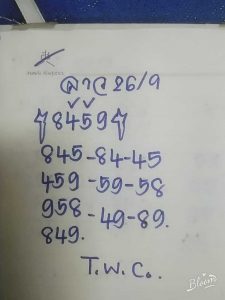 ลาว 26/9
8459
845-84-45
459-59-58
958-49-89.
849.
T.W.C.
Bloom